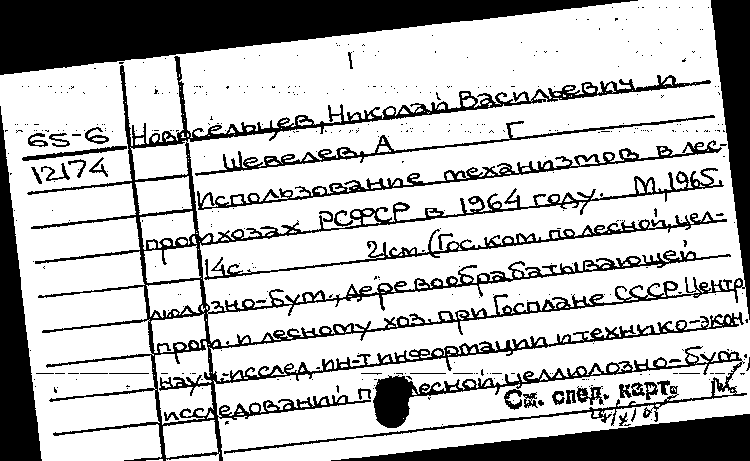 I
65-6 Новосельцев, Николай Васильевич и
12174 Шевелев, А Г
Использование механизмов в лес-
промхозах РСФСР в 1964 году. М., 1965.
14с. 21см. (Гос. ком. по лесной, цел-
люлозно-бум., деревообрабатывающей
пром. и лесному хоз. при Госплане СССР. Центр.
науч.-исслед. ин-т информации и технико-экон.
исследований п лесной, целлюлозно-бум.,
См. след. карт.